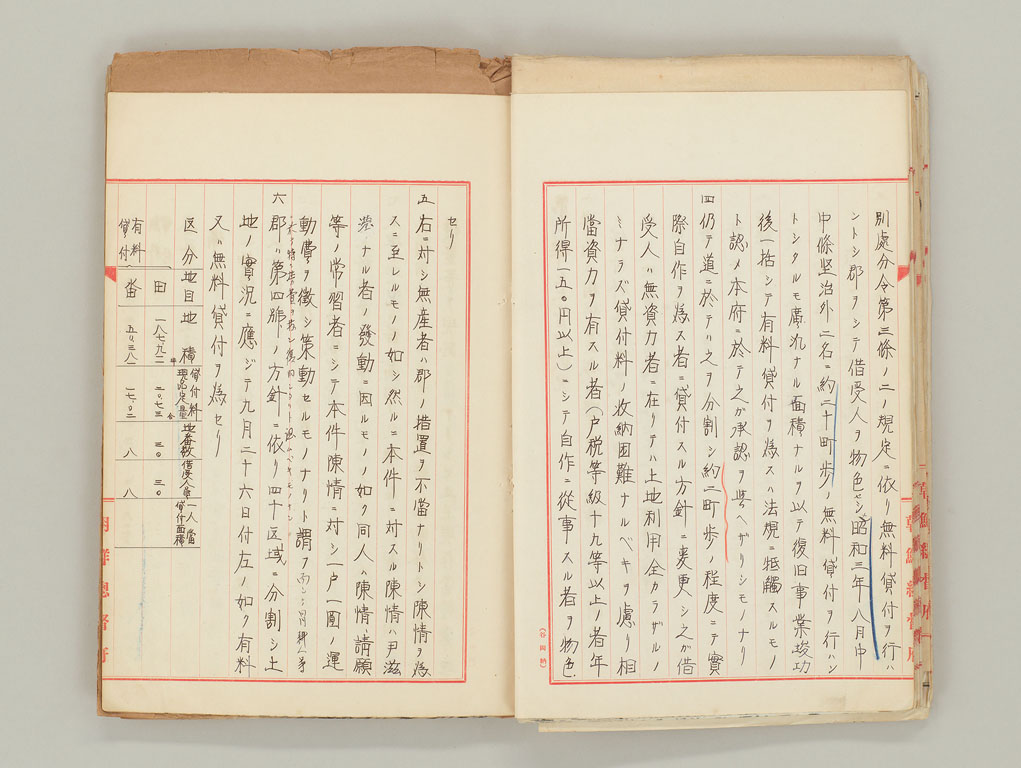 別處分令第三條ノ二ノ規定ニ依リ無料貸付ヲ行ハ
ントシ郡ヲシテ借受人ヲ物色セシ昭和三年八月中
中條堅治外二名ニ約二十町歩ノ無料貸付ヲ行ハン
トシタルモ廣汎ナル面積ナルヲ以テ復旧事業竣功
後一括シテ有料貸付ヲ爲スハ法規ニ牴觸スルモノ
ト認メ本府ニ於テ之ガ承認ヲ與ヘザリシモノナリ
四 仍テ道ニ於テハ之ヲ分割シ約二町歩ノ程度ニテ實
際自作ヲ爲ス者ニ貸付スル方針ニ変更シ之ガ借
受人ハ無資力者ニ在リテハ土地利用全カラザルノ
ミナラズ貸付料ノ收納困難ナルベキヲ慮リ相
當資力ヲ有スル者(戸税等級十九等以上ノ者年
所得一五〇円以上)ニシテ自作ニ從事スル者ヲ物色
(谷岡納)
セリ
五 右ニ対シ無産者ハ郡ノ措置ヲ不當ナリトシ陳情ヲ爲
スニ至レルモノノ如シ然ルニ本件ニ対スル陳情ハ尹滋
ナル者ノ發動ニ因ルモノノ如ク同人ハ陳情、請願
等ノ常習者ニシテ本件陳情ニ対シ一戸一圓ノ運
動費ヲ徴シ策動セルモノナリト謂フ
六 郡ハ第四ノ方針ニ依リ四十区域ニ分割シ土
地ノ實況ニ應ジテ九月二十六日付左ノ如ク有料
又ハ無料貸付ヲ爲セリ
区分 地目 地積 貸付料現品定量 地番数 借受人員 一人當貸付面積
有料貸付 田 一八七九二 二〇七三 三〇 三〇
畓 八 八
朝鮮總督府